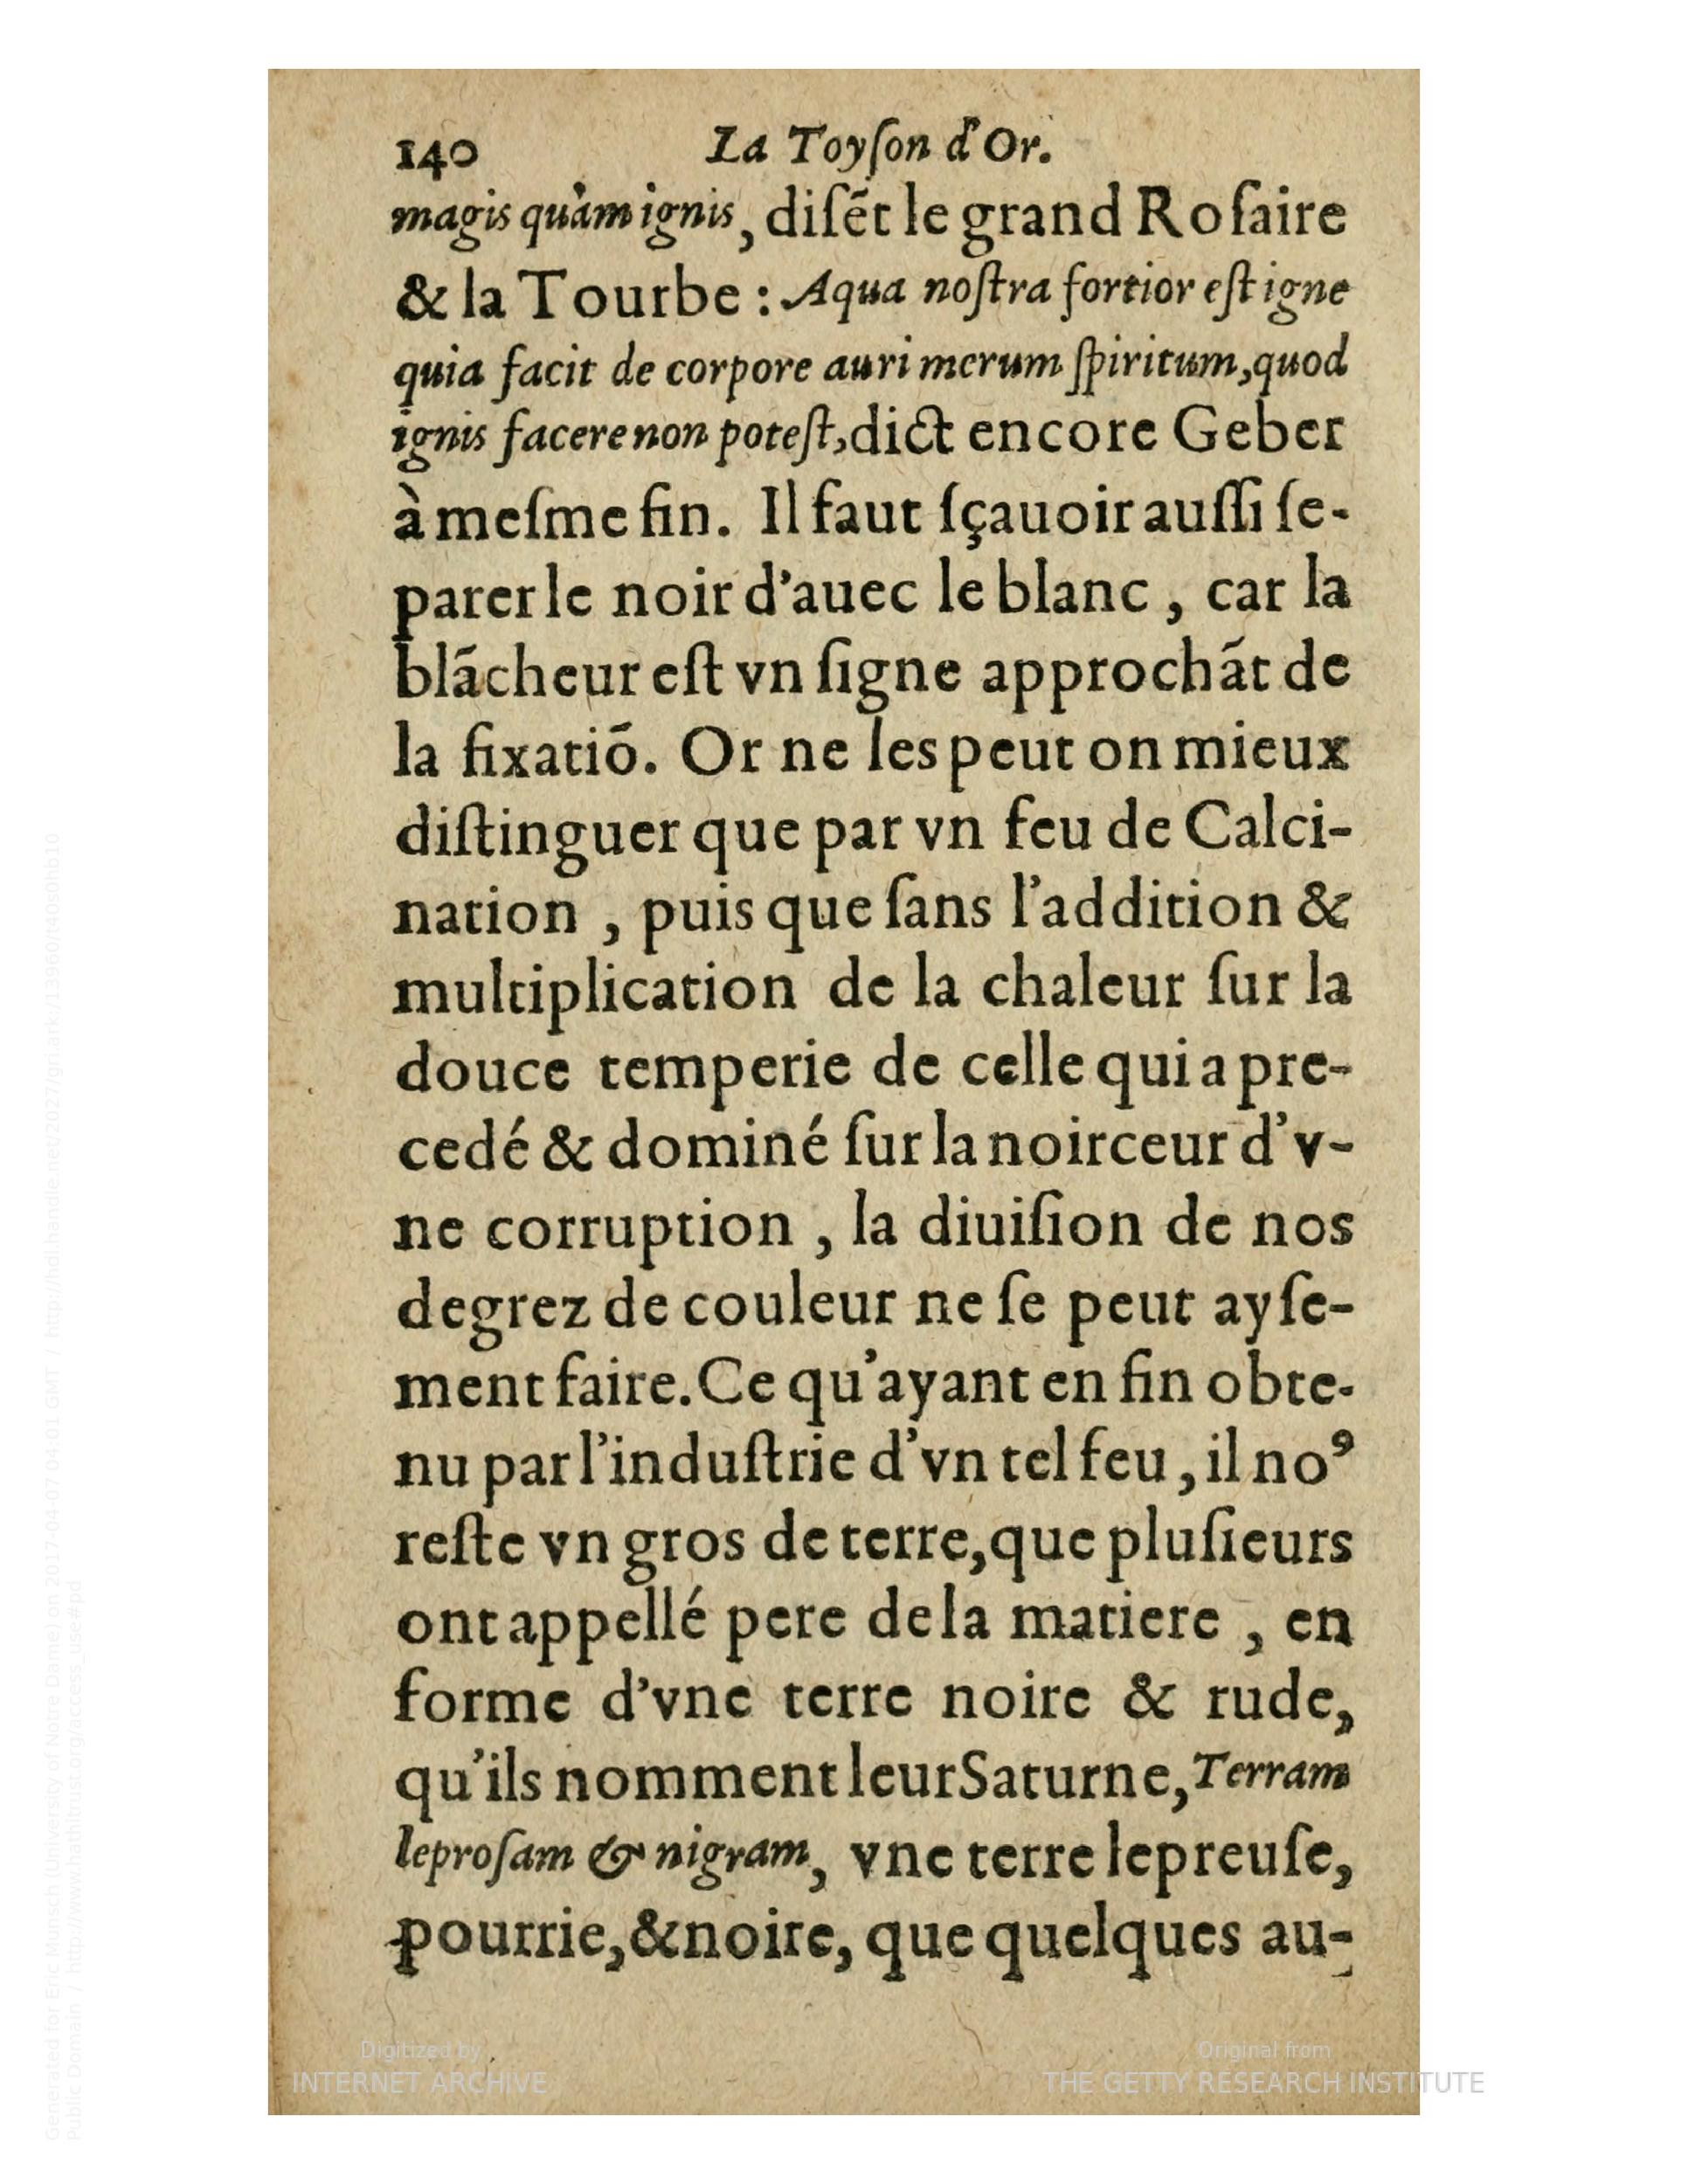 140 La Toyſon d'Or.
magis quàm ignis, diſẽt le grand Roſaire
& la Tourbe : Aqua noſtra fortior eſt igne
quia facit de corpore auri merum ſpiritum, quod
ignis facere non poteſt, dict encore Geber
à meſme fin. Il faut ſçauoir auſſi ſe-
parer le noir d'auec le blanc, car la
blãcheur eſt vn ſigne approchãt de
la fixatiõ. Or ne les peut on mieux
diſtinguer que par vn feu de Calci-
nation, puis que ſans l'addition &
multiplication de la chaleur ſur la
douce temperie de celle qui a pre-
cedé & dominé ſur la noirceur d'v-
ne corruption, la diuiſion de nos
degrez de couleur ne ſe peut ayſe-
ment faire. Ce qu'ayant en fin obte-
nu par l'induſtrie d'vn tel feu, il noꝰ
reſte vn gros de terre, que pluſieurs
ont appellé pere de la matiere, en
forme d'vne terre noire & rude,
qu'ils nomment leur Saturne, Terram
leproſam & nigram, vne terre lepreuſe,
pourrie, & noire, que quelques au-
Digitized by
INTERNET ARCHIVE
Original from
THE GETTY RESEARCH INSTITUTE
Generated for Eric Munsch (University of Notre Dame) on 2017-04-07 04:01 GMT / http://hdl.handle.net/2027/gri.ark:/13960/t40s0hb10
Public Domain / http://www.hathitrust.org/access_use#pd